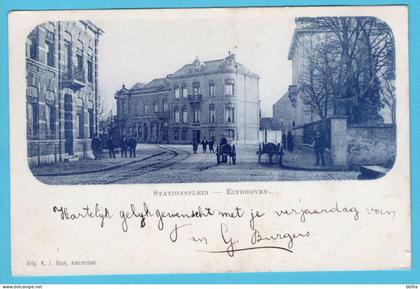 STATIONSPLEIN — EINDHOVEN.
Hartelijk gelyk gewenscht met je verjaardag van
J. en G. Burgers.
Uitg. N. J. Boon, Amsterdam.